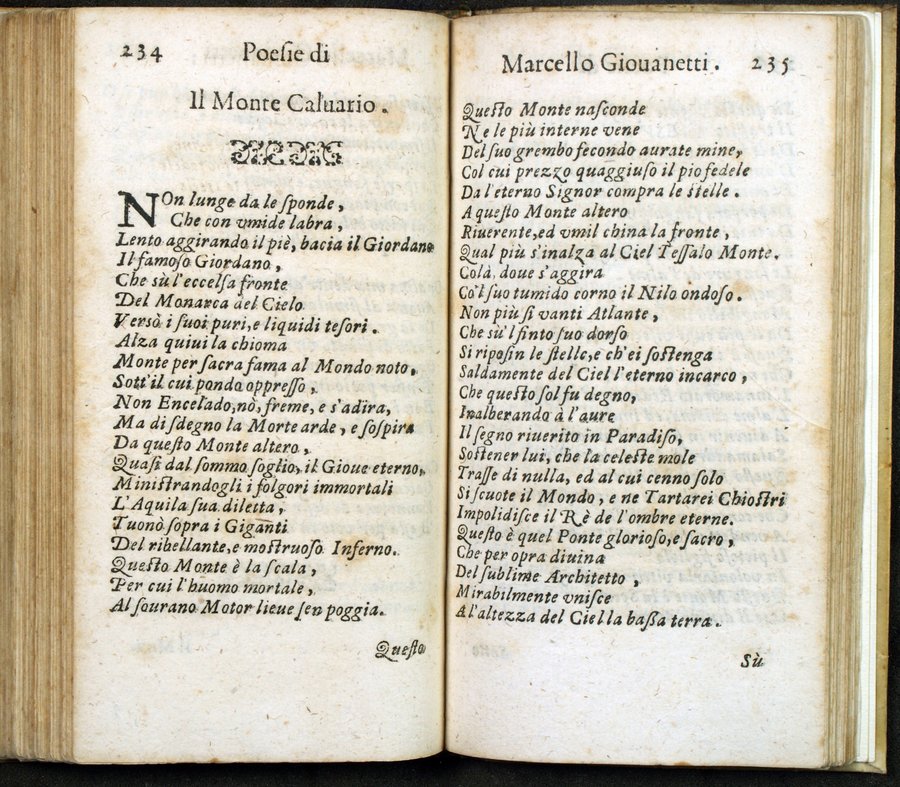 234 Poesie di
Il Monte Caluario.
NOn lunge da le sponde,
Che con vmide labra,
Lento aggirando il piè, bacia il Giordano
Il famoso Giordano,
Che sù l'eccelsa fronte
Del Monarca del Cielo
Versò i suoi puri, e liquidi tesori.
Alza quiui la chioma
Monte per sacra fama al Mondo noto,
Sott'il cui pondo oppresso,
Non Encelado, nò, freme, e s'adira,
Ma di sdegno la Morte arde, e sospira
Da questo Monte altero,
Quasi dal sommo soglio, il Gioue eterno,
Ministrandogli i folgori immortali
L'Aquila sua diletta,
Tuonò sopra i Giganti
Del ribellante, e mostruoso Inferno.
Questo Monte è la scala,
Per cui l'huomo mortale,
Al sourano Motor lieue sen poggia.
Questo
Marcello Giouanetti. 235
Questo Monte nasconde
Ne le più interne vene
Del suo grembo fecondo aurate mine,
Col cui prezzo quaggiuso il pio fedele
Da l'eterno Signor compra le stelle.
A questo Monte altero
Riuerente, ed vmil china la fronte,
Qual più s'inalza al Ciel Tessalo Monte.
Colà, doue s'aggira
Co'l suo tumido corno il Nilo ondoso.
Non più si vanti Atlante,
Che sù'l finto suo dorso
Si riposin le stelle, e ch'ei sostenga
Saldamente del Ciel l'eterno incarco,
Che questo sol fu degno,
Inalberando à l'aure
Il segno riuerito in Paradiso,
Sostener lui, che la celeste mole
Trasse di nulla, ed al cui cenno solo
Si scuote il Mondo, e ne Tartarei Chiostri
Impolidisce il Rè de l'ombre eterne.
Questo è quel Ponte glorioso, e sacro,
Che per opra diuina
Del sublime Architetto,
Mirabilmente vnisce
A l'altezza del Ciel la bassa terra.
Sù